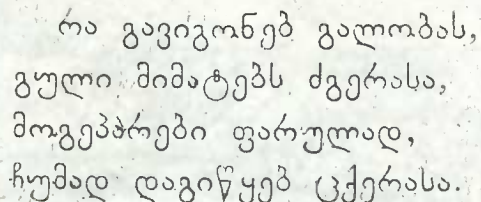 რა გავიგონებ გალობას,
გული მიმატებს ძგერასა,
მოგეპარები ფარულად,
ჩუმად დაგიწყებ ცქერასა.